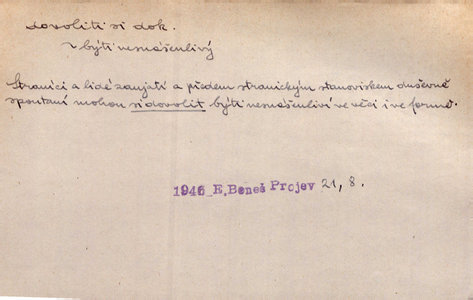 dovoliti si dok.
~ býti nesnášenlivý
Straníci a lidé zaujatí a předem stranickým stanoviskem duševně
spoutaní mohou si dovolit býti nesnášenliví ve věci i ve formě.
1946 E. Beneš Projev 21, 8.